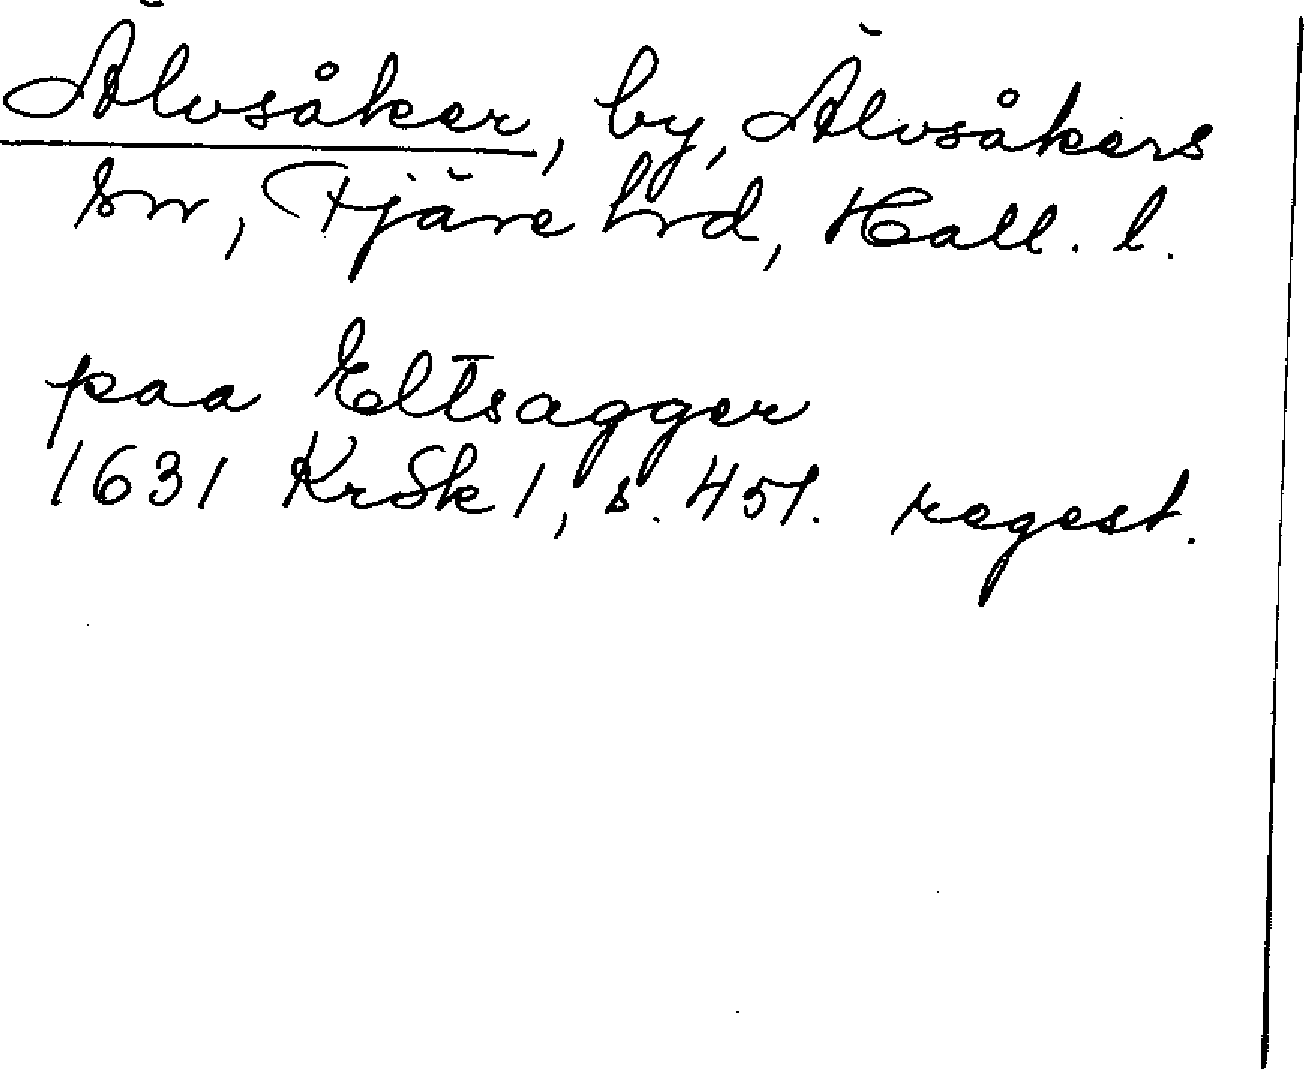 Älvsåker, by, Älvsåkers
sn, Fjäre hrd, Hall. l.
paa Eltsagger
1631 KrSk 1, s. 451. regest.